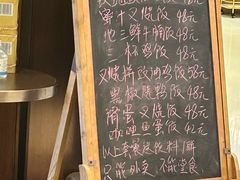 蜜汁叉烧饭 48元
地三鲜牛腩饭 48元
三杯鸡饭 48元
叉烧拼豉油鸡饭 58元
黑椒脆鸡饭 48元
滑蛋叉烧饭 48元
咖喱鱼蛋饭 42元
以上套餐送饮料1杯
只能外卖，不能堂食